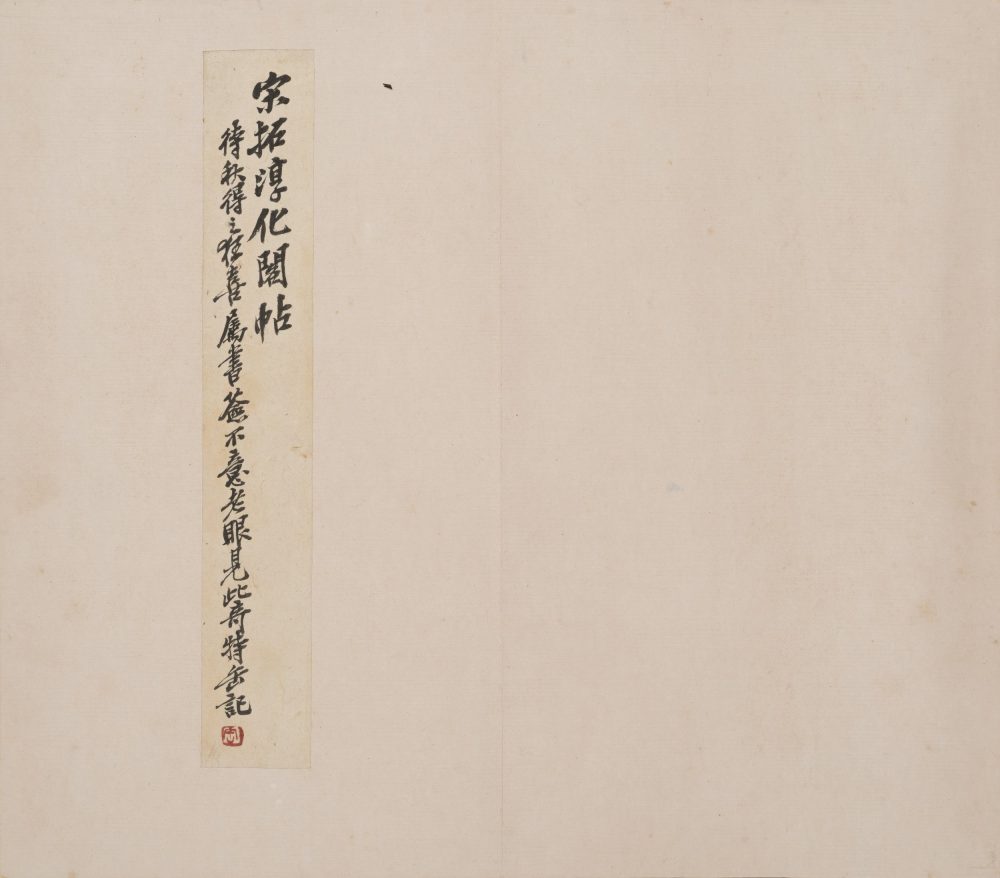 宋拓淳化閣帖
待秋得之狂喜属書簽不意老眼見此奇特缶記
缶